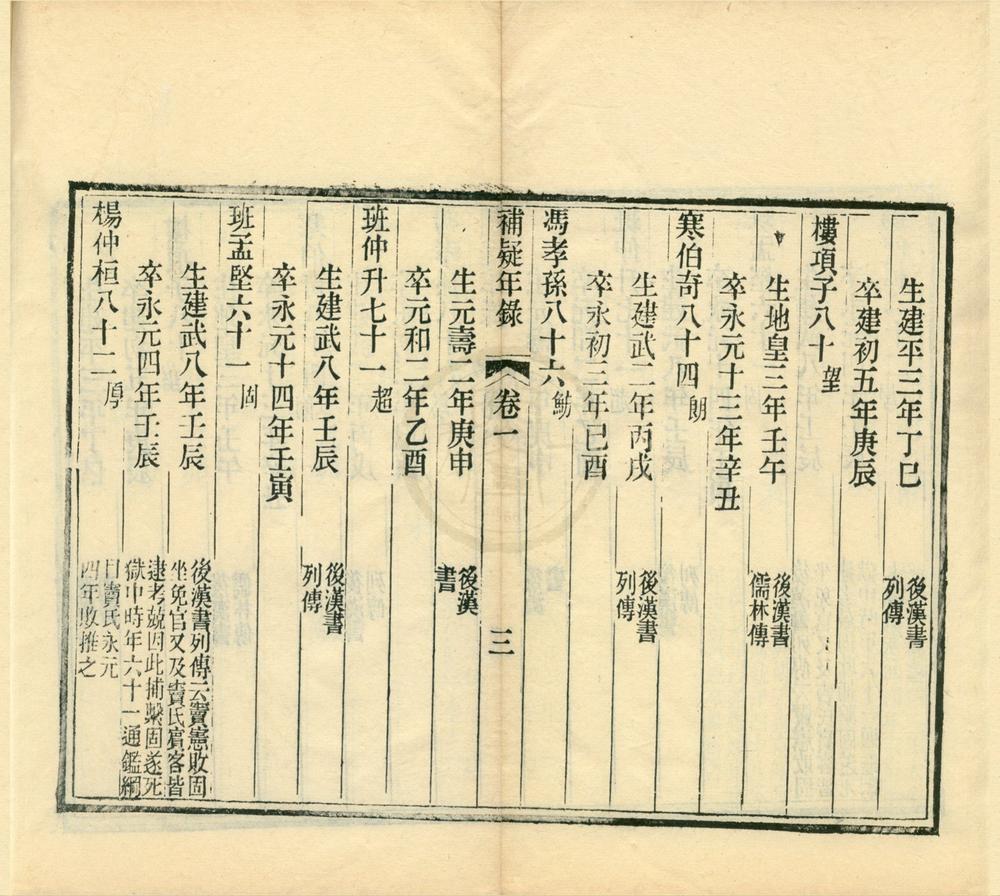 生建平三年丁巳　後漢書列傳
卒建初五年庚辰
樓項子八十 望
生地皇三年壬午　後漢書儒林傳
卒永元十三年辛丑
寒伯奇八十四 朗
生建武二年丙戌　後漢書列傳
卒永初三年己酉
馮孝孫八十六 魴
補疑年錄　卷一　三
生元壽二年庚申　後漢書
卒元和二年乙酉
班仲升七十一 超
生建武八年壬辰　後漢書列傳
卒永元十四年壬寅
班孟堅六十一 固
生建武八年壬辰　後漢書列傳云竇憲敗固
坐免官又及竇氏賓客皆
逮考兢因此捕繫固遂死
卒永元四年壬辰　獄中時年六十一通鑑綱
目竇氏永元
四年敗推之
楊仲桓八十二 厚